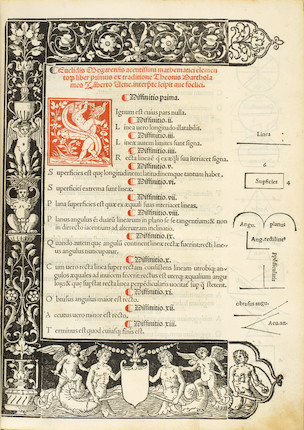 Euclidis Megarensis acutissimi mathematici elementorum liber primus ex traditione Theonis Bartholameo Zamberto Veneto interprete
Diffinitio prima.
Signum est cuius pars nulla.
Diffinitio .ii.
Linea uero longitudo illatabilis.
Diffinitio .iii.
Lineæ autem limites sunt signa.
Diffinitio .iiii.
Recta linea
Diffinitio .v.
Superficies est quæ longitudinem latitudinemque tantum habet.
Diffinitio .vi.
Superficiei extrema sunt lineæ.
Diffinitio .vii.
Plana superficies est quæ ex æquali suas interiacet lineas.
Diffinitio .viii.
Planus angulus est duarum linearum in plano se se tangentium & non in directo iacentium ad alterutram inclinatio.
Diffinitio .ix.
Quando autem quæ angulum continent lineæ rectæ fuerint rectilineus angulus nuncupatur.
Diffinitio .x.
Cum uero recta linea super rectam consistens lineam utrobique angulos æquales ad inuicem fecerit rectus est uterque æqualium angulorum
Diffinitio .xi.
Obtusus angulus maior est recto.
Diffinitio .xii.
Acutus uero minor est recto.
Diffinitio .xiii.
Terminus est quod cuiusque finis est.
Linea
Superficies
Angu. planus
Ang. rectilineus
obtusus angu.
Acu. an.